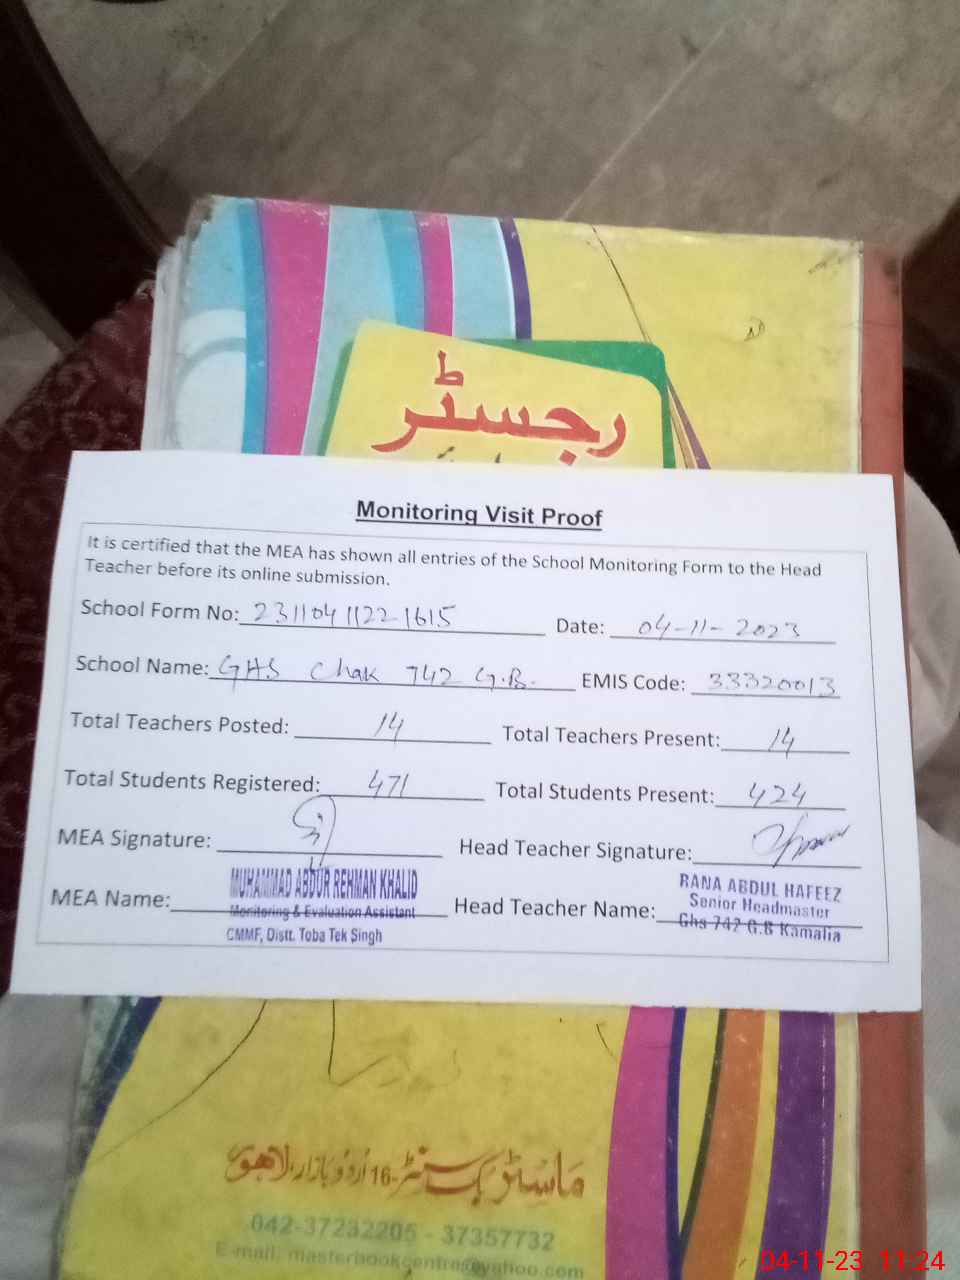 رجسٹر
Monitoring Visit Proof
It is certified that the MEA has shown all entries of the School Monitoring Form to the Head
Teacher before its online submission.
School Form No: 2311041122-1615 Date: 04-11-2023
School Name: GHS Chak 742 G.B. EMIS Code: 33320013
Total Teachers Posted: 14 Total Teachers Present: 14
Total Students Registered: 471 Total Students Present: 424
MEA Signature: Head Teacher Signature:
MEA Name: MUHAMMAD ABDUR REHMAN KHALID Head Teacher Name: RANA ABDUL HAFEEZ
Monitoring & Evaluation Assistant Senior Headmaster
CMMF, Distt. Toba Tek Singh Ghs 742 G.B Kamalia
ماسٹر بک سنٹر-16 اُردو بازار، لاہور
042-37232205 - 37357732
E-mail: masterbookcentre@yahoo.com
04-11-23 11:24